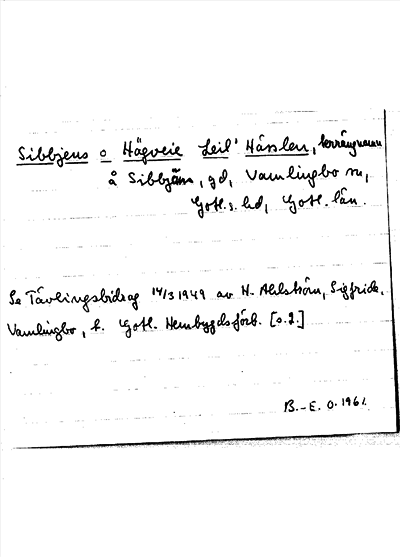 Sibbjens o Hägveie Leil' Hässlen, terrängnamn
å Sibbjäns, gd, Vamlingbo sn,
Gotl. s. hd, Gotl. län.
Se Tävlingsbidrag 14/3 1949 av H. Ahlström, Sigfride,
Vamlingbo, t. Gotl. Hembygdsförb. [s. 2.]
B.-E. O. 1961.